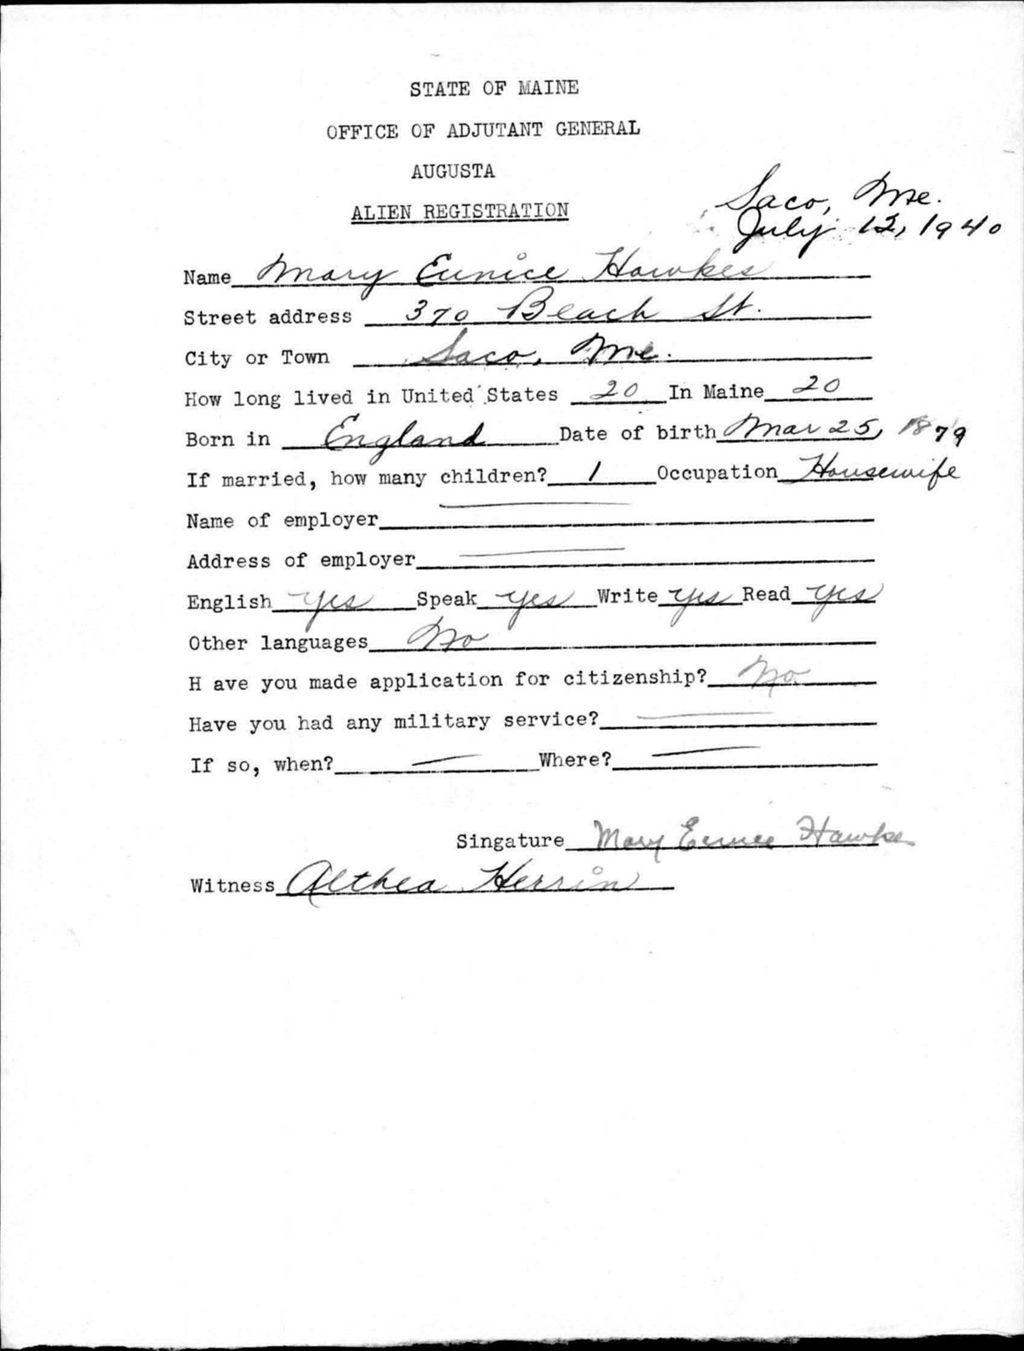 STATE OF MAINE
OFFICE OF ADJUTANT GENERAL
AUGUSTA
ALIEN REGISTRATION
Saco, Me.
July 12, 1940
Name Mary Eunice Hawkes
Street address 370 Beach St.
City or Town Saco, Me.
How long lived in United States 20 In Maine 20
Born in England Date of birth Mar 25, 1879
If married, how many children? 1 Occupation Housewife
Name of employer
Address of employer
English Yes Speak Yes Write Yes Read Yes
Other languages No
H ave you made application for citizenship? No
Have you had any military service?
If so, when? Where?
Singature Mary Eunice Hawkes
Witness Althea Herrin